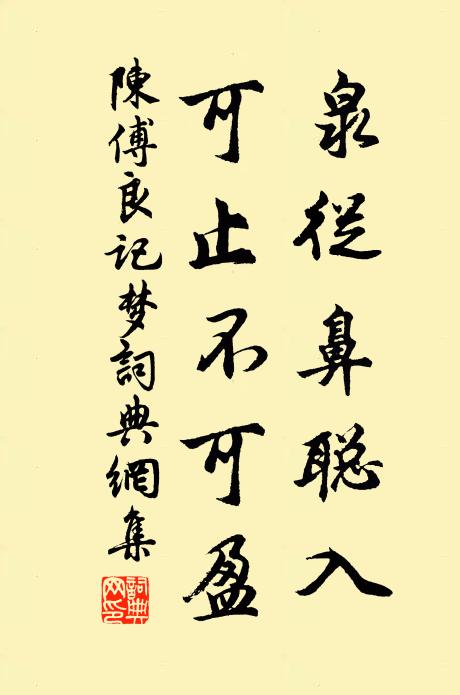 泉從鼻聪入
可止不可盈
陳傅良记梦詞典網集
詞典网印